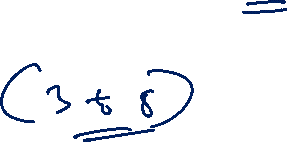 =
(3 to 8)